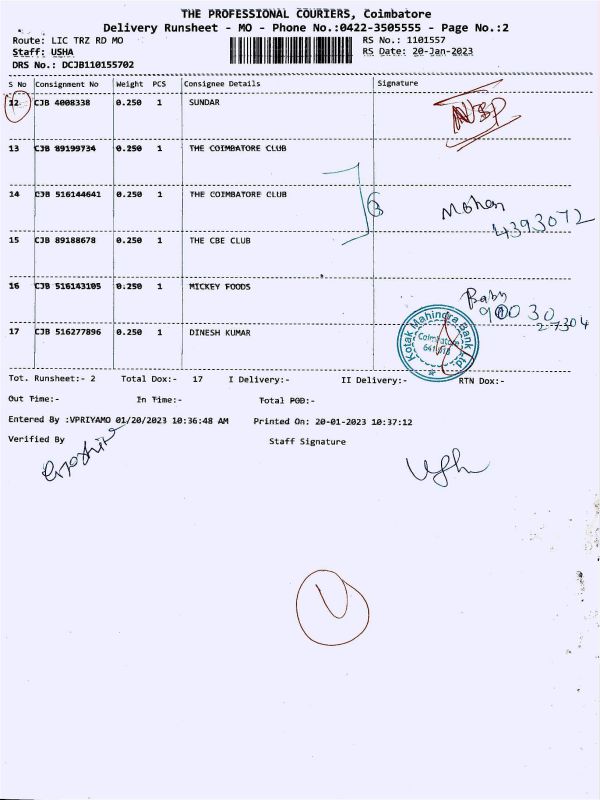 THE PROFESSIONAL COURIERS, Coimbatore
Delivery Runsheet - MO - Phone No.:0422-3505555 - Page No.:2
Route: LIC TRZ RD MO RS No.: 1101557
Staff: USHA RS Date: 20-Jan-2023
DRS No.: DCJB110155702
S No Consignment No Weight PCS Consignee Details Signature
12 CJB 4008338 0.250 1 SUNDAR
13 CJB 89199734 0.250 1 THE COIMBATORE CLUB
14 CJB 516144641 0.250 1 THE COIMBATORE CLUB
Mohan
4393072
15 CJB 89188678 0.250 1 THE CBE CLUB
16 CJB 516143105 0.250 1 MICKEY FOODS
Baby
90030
27304
17 CJB 516277896 0.250 1 DINESH KUMAR
Kotak Mahindra Bank Ltd
Coimbatore
641018
Tot. Runsheet:- 2 Total Dox:- 17 I Delivery:- II Delivery:- RTN Dox:-
Out Time:- In Time:- Total POD:-
Entered By :VPRIYAMO 01/20/2023 10:36:48 AM Printed On: 20-01-2023 10:37:12
Verified By Staff Signature